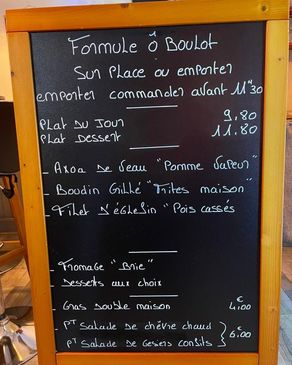 Formule Ô Boulot
Sur Place ou emporter
emporter commander avant 11H30
Plat du Jour 9,80
Plat Dessert 11,80
- Axoa de Veau "Pomme Vapeur"
- Boudin Grillé "Frites maison"
- Filet d'églefin "Pois cassés
- Fromage "Brie"
- Desserts aux choix
- Gras Double maison 4,00 €
- PT Salade de chèvre chaud
- PT Salade de Gesiers confits } 6,00 €